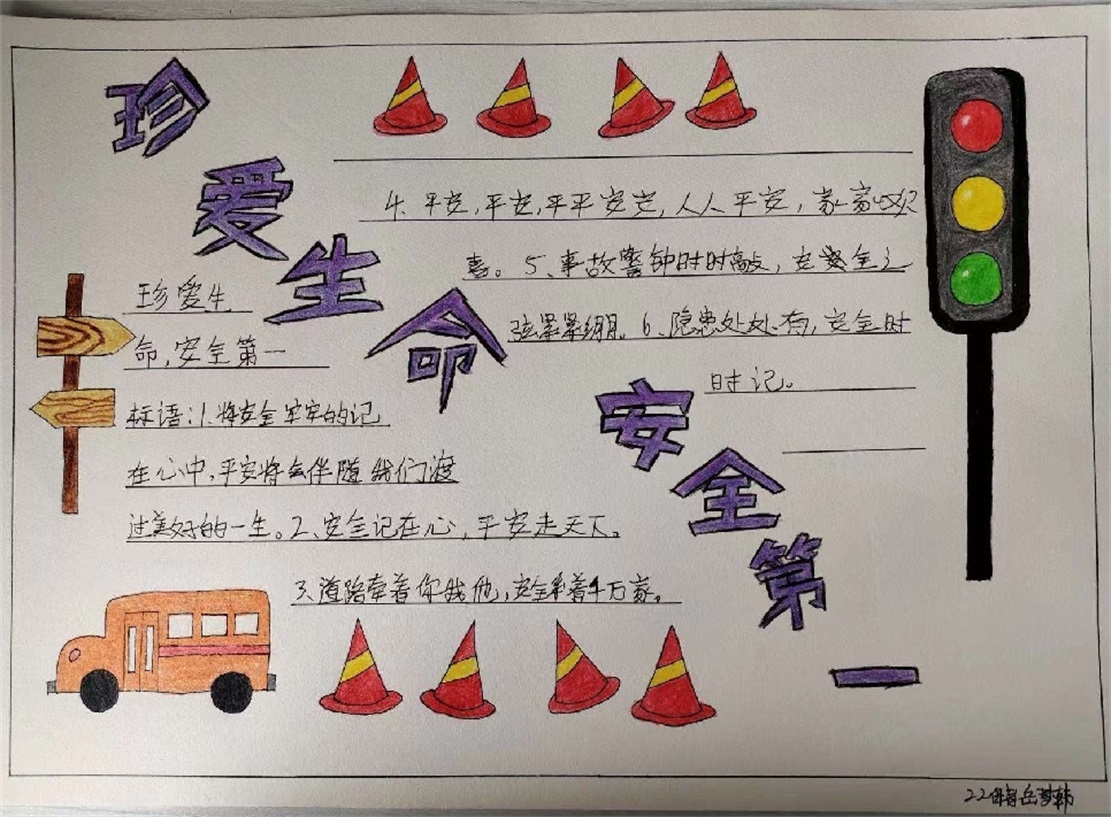 珍爱生命
安全第一
珍爱生
命,安全第一
标语:1、将安全牢牢的记
在心中,平安将会伴随我们渡
过美好的一生。2、安全记在心,平安走天下。
3、道路牵着你我他,安全系着千万家。
4、平安,平安,平平安安,人人平安,家家欢
喜。5、事故警钟时时敲,安全之
弦紧紧绷。6、隐患处处有,安全时
时记。